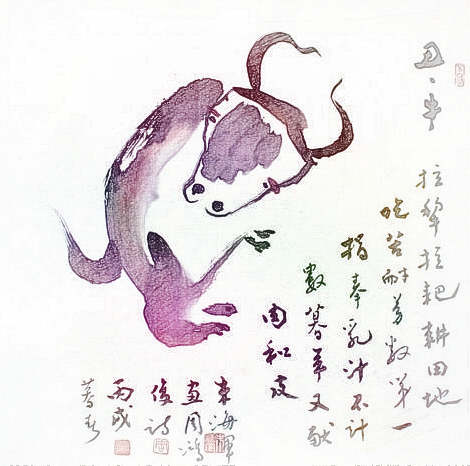 丑牛
拉犁拉耙耕田地
吃苦耐劳数第一
捐奉乳汁不计
数暮年又献
肉和皮
東海
画周
俊诗
丙戌
暮春